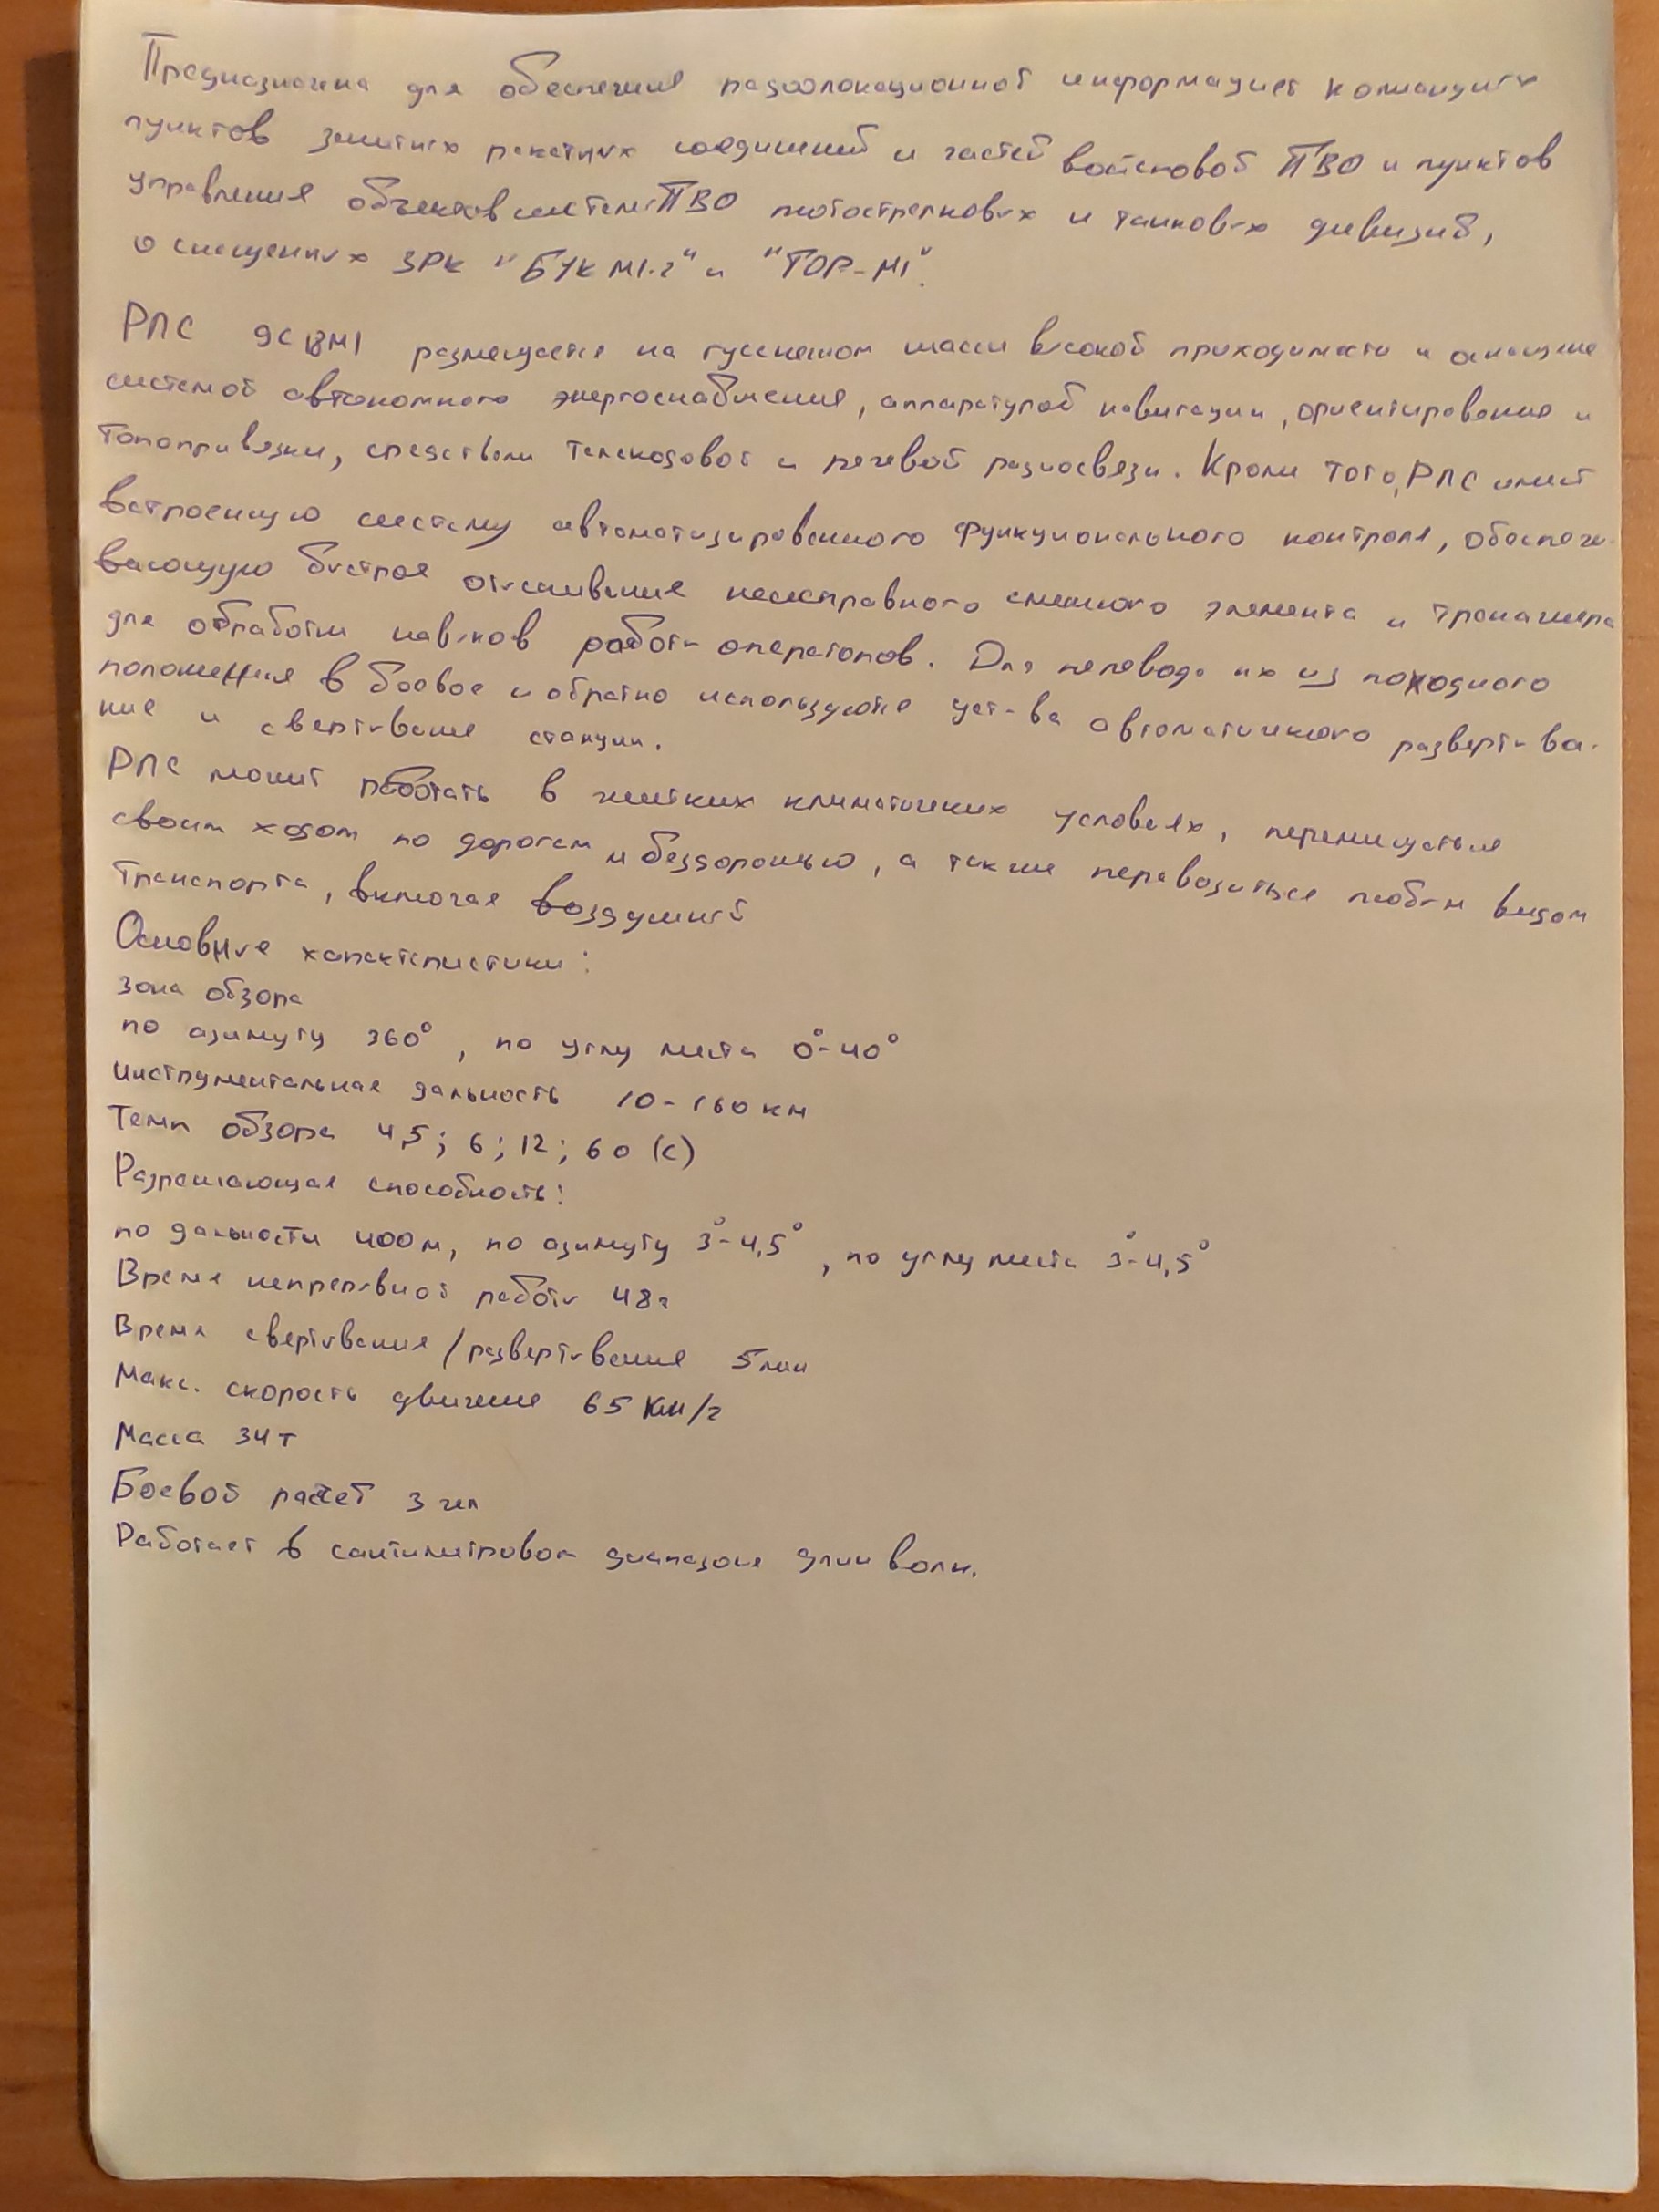 Предназначена для обеспечения радиолокационной информацией командных
пунктов зенитных ракетных соединений и частей войсковой ПВО и пунктов
управления объектов систем ПВО мотострелковых и танковых дивизий,
оснащенных ЗРК "БУК М1-2" и "ТОР-М1".
РЛС 9С18М1 размещается на гусеничном шасси высокой проходимости и оснащена
системой автономного энергоснабжения, аппаратурой навигации, ориентирования и
топопривязки, средствами телекодовой и речевой радиосвязи. Кроме того, РЛС имеет
встроенную систему автоматизированного функционального контроля, обеспечи-
вающую быстрое отыскивание неисправного сменного элемента и тренажера
для обработки навыков работы операторов. Для перевода их из походного
положения в боевое и обратно используются уст-ва автоматического развертыва-
ние и свертывание станции.
РЛС может работать в жестких климатических условиях, перемещаться
своим ходом по дорогам и бездорожью, а также перевозиться любым видом
транспорта, включая воздушный
Основные характеристики:
зона обзора
по азимуту 360°, по углу места 0°-40°
инструментальная дальность 10-160 км
Темп обзора 4,5; 6; 12; 60 (с)
Разрешающая способность:
по дальности 400 м, по азимуту 3°-4,5°, по углу места 3°-4,5°
Время непрерывной работы 48ч
Время свертывания/развертывания 5 мин
Макс. скорость движения 65 Км/ч
Масса 34 т
Боевой расчет 3 чел
Работает в сантиметровом диапазоне длин волн.